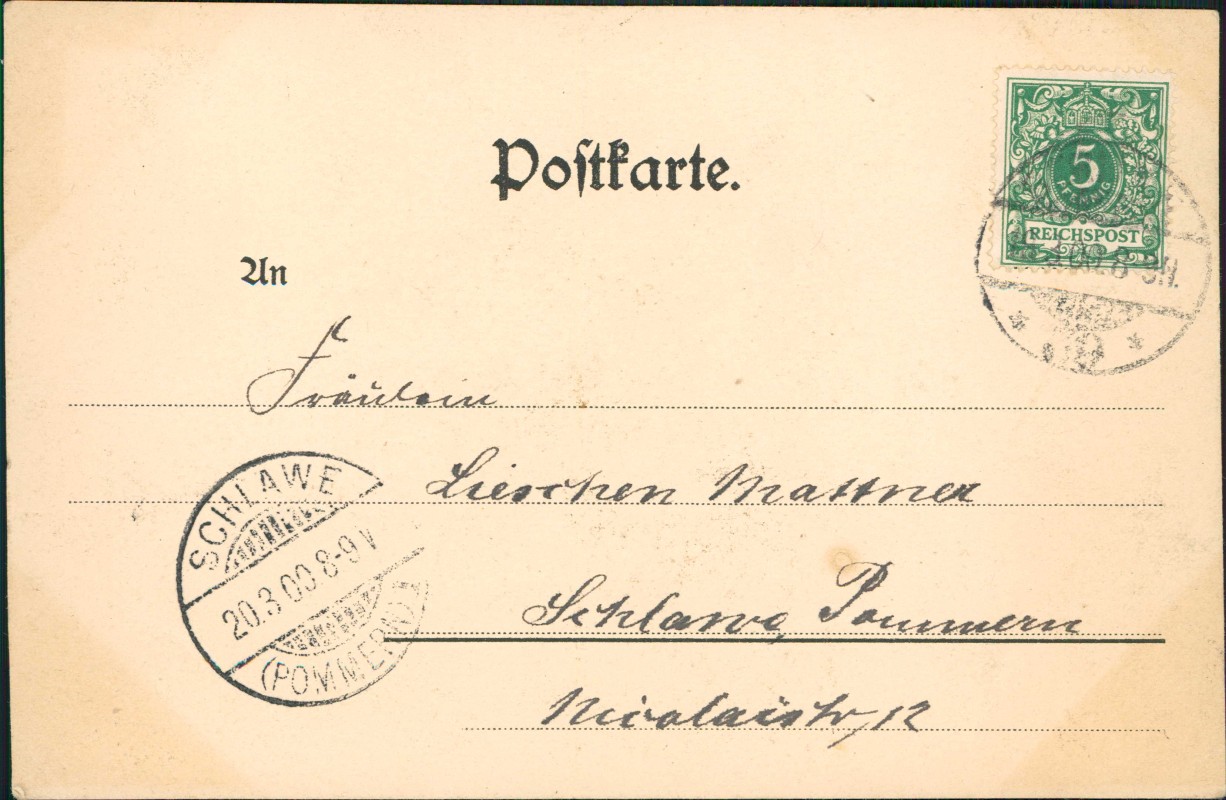 Postkarte.
5
PFENNIG
REICHSPOST
8-9N.
An
Fräulein
Lieschen Mattner
SCHLAWE
20.3.00.8-9V
(POMMERN)
Schlawe, Pommern
Nicolaistr. 12